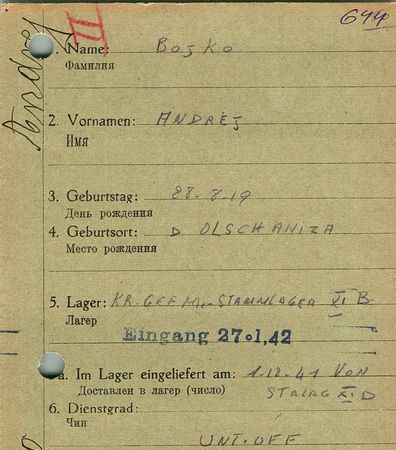 644
II
Andrej
1. Name: Bojko
Фамилия
2. Vornamen: ANDREJ
Имя
3. Geburtstag: 28.8.19
День рождения
4. Geburtsort: D OLSCHANIZA
Место рождения
5. Lager: KR. GEF. M.-STAMMLAGER XI B
Лагер
Eingang 27.1.42
a. Im Lager eingeliefert am: 1.12.41 VON
Доставлен в лагер (число) STALAG XI D
6. Dienstgrad:
Чин
UNT. OFF